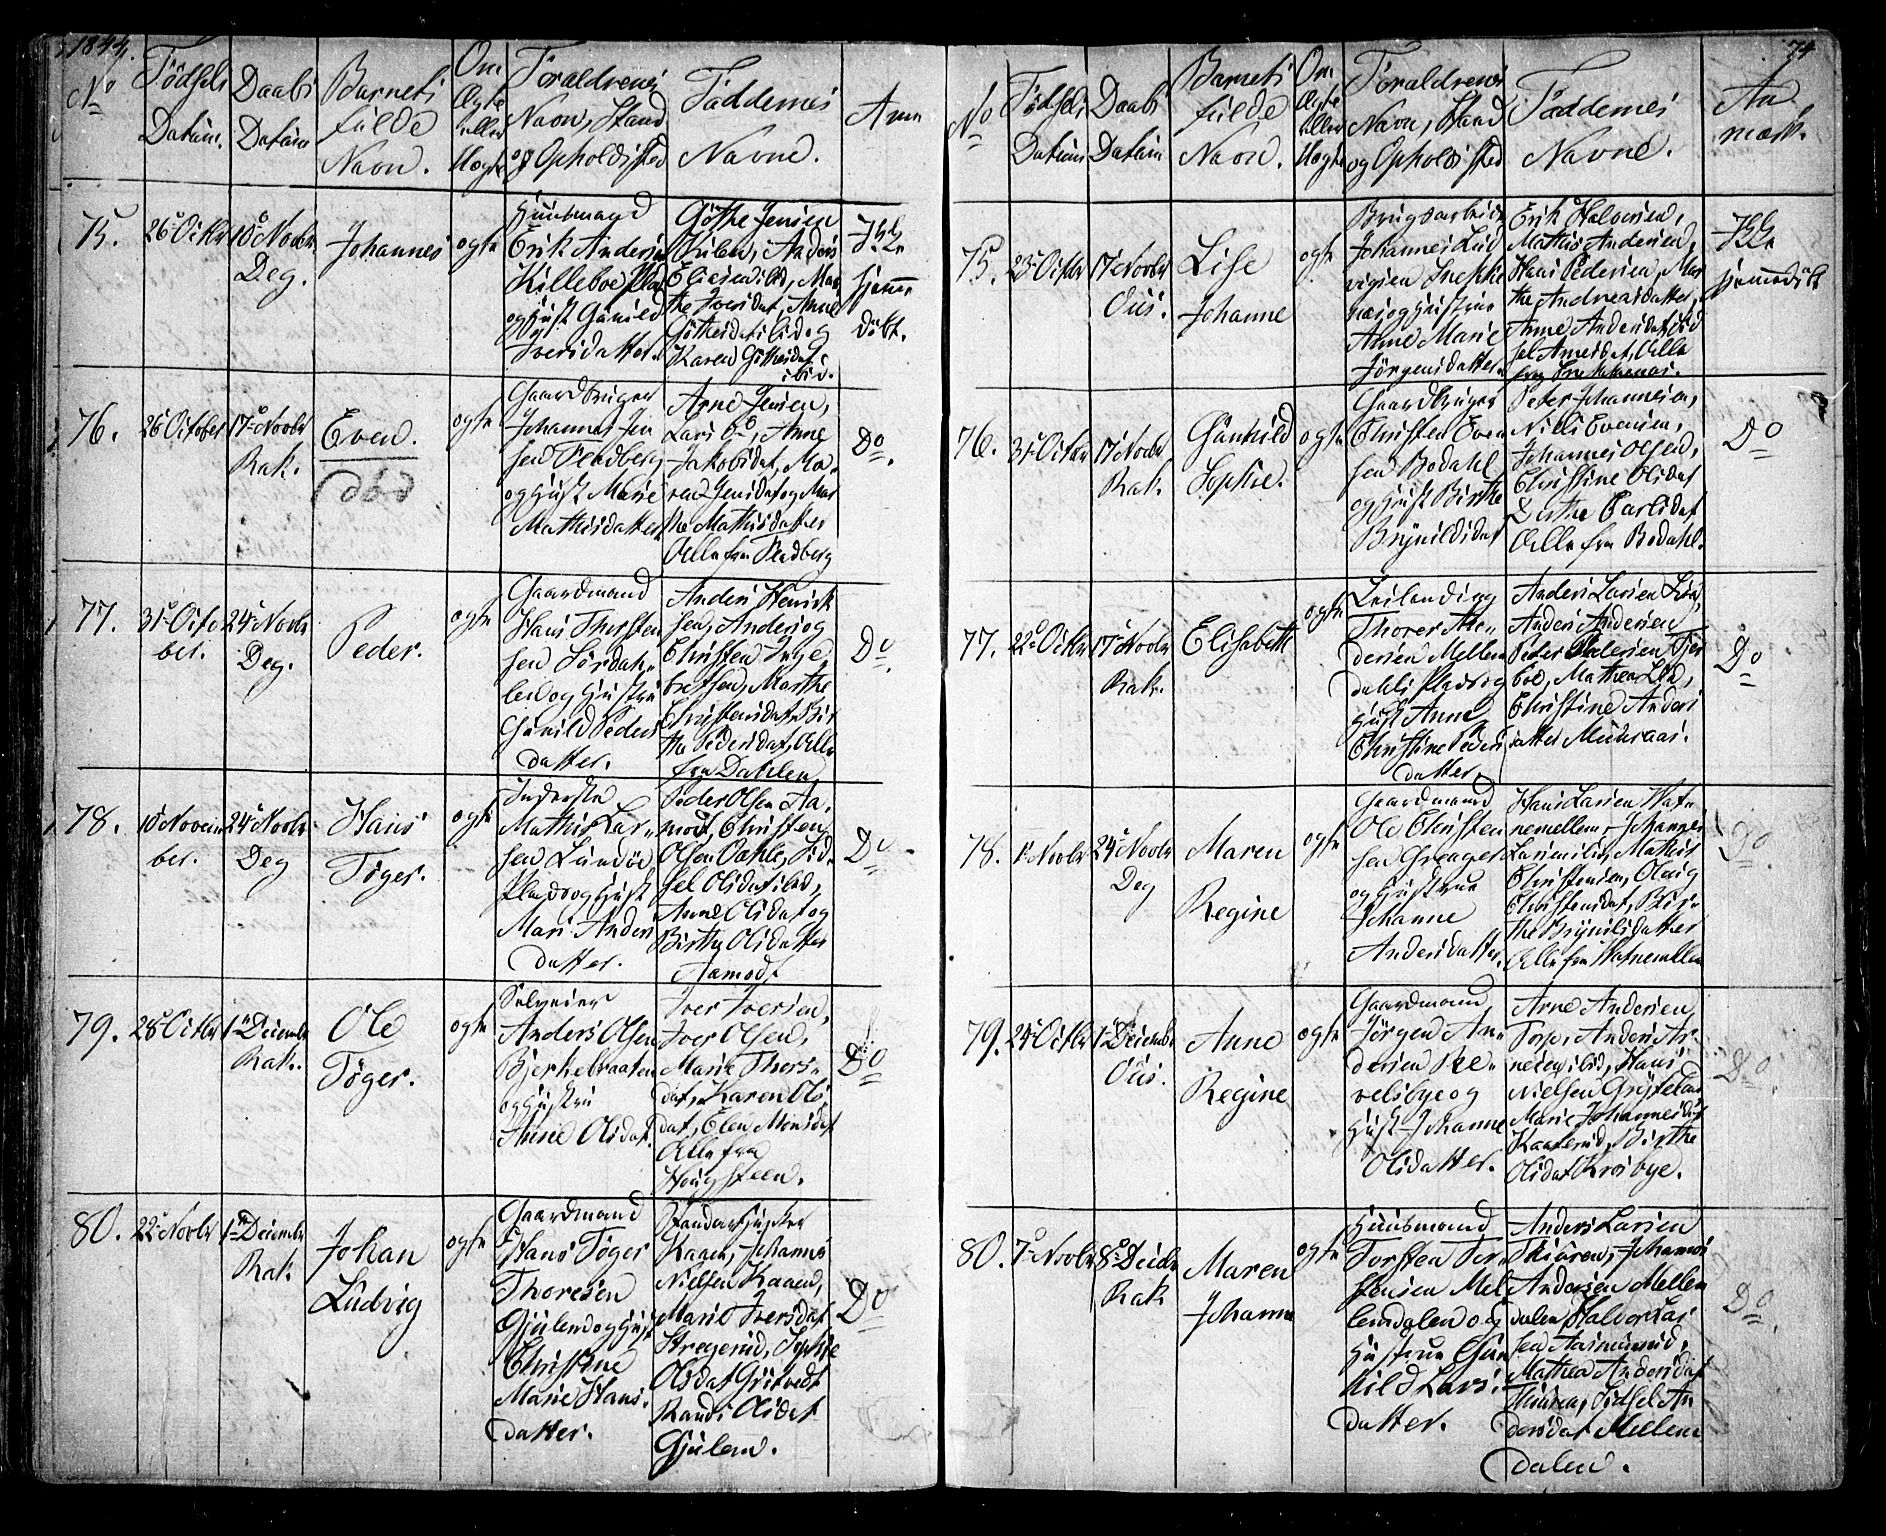 1844.
No
Fødsels
Datum.
Daabs
Datum
Barnets
fulde
Navn.
Om
Ægte
eller
Uægte
Forældrenes
Navn, Stand
og Opholdssted
Faddernes
Navne.
Anm
75.
26 Octbr
10 Novbr
Deg.
Johannes
ægte
Huusmand
Erik Anders
Killeboe Plad
og Hust Gunild
Iversdatter.
Göthe Jensen
Anders
Eliesen ibid, Mar
the Iversdat, Anne
Göthesdat ibid og
Karen Göthesdat
ibid.
hjemme
døbt.
76.
26 October
17 Novbr
Rak.
Even.
død
ægte
Gaardbruger
Johannes Jen
sen Flesberg
og Hust Marie
Mathisdatter
Arne Jensen,
Lars Do, Anne
Jakobsdat, Ma-
ren Jensdat og Mar
the Mathisdatter
Alle fra Flesberg
Do.
77.
31 Octo
ber.
24 Novbr
Deg.
Peder.
ægte
Gaardmand
Hans Thorsten
sen Sördah-
len og Hustru
Gunild Peders
datter.
Anders Henrik
sen, Anders og
Christen Inge
bretsen, Marthe
Christensdat, Bir
the Pedersdat, Alle
fra Dahlen
Do.
78.
10 Novem
ber.
24 Novbr
Deg
Hans
Töger.
ægte
Inderste
Mathis Lar-
sen Lundöe
Plads og Hust
Mari Anders
datter.
Peder Olsen Aa-
modt, Christen
Olsen Dahle, Sid-
sel Olsdat ibid,
Anne Olsdat og
Birthe Olsdatter
Aamodt
Do
79.
28 Octbr
1 Decembr
Rak.
Ole
Töger.
ægte
Selveier
Anders Olsen
Bjerkebraaten
og Hustru
Anne Olsdat.
Iver Iversen,
Iver Olsen,
Marie Thors-
dat, Karen Ols
dat, Elen Monsdat
Alle fra
Hougsteen.
Do
80.
22 Novbr
1 Decembr
Rak.
Johan
Ludvig
ægte
Gaardmand
Hans Töger
Thoresen
Gjulem og Hust
Christine
Marie Hans-
datter.
Standartjunker
Kaaen, Johannes
Nielsen Kaaen,
Marie Iversdat
Stregerud, Sophie
Olsdat Guttvedt
Randi Olsdat
Gjulem.
Do
74
No
Fødsels
Datum
Daabs
Datum
Barnets
fulde
Navn.
Om
Ægte
eller
Uægte
Forældrenes
Navn, Stand
og Opholdssted
Faddernes
Navne.
An
mærk.
75.
23 Octbr
17 Novbr
Ous.
Lise
Johanne
ægte
Brugsarbeider
Johannes Lud
vigsen
og Hustrue
Anne Marie
Jörgensdatter.
Erik Halvorsen,
Mathis Andersen,
Hans Pedersen, Mar
the Andreasdatter,
Anne Andersdat, Sid
sel Arnesdat, Alle
fra
hjemmedøbt
76.
31 Octbr
17 Novbr
Rak.
Gunhild
Sophie.
ægte
Gaardbruger
Christen Even
sen Bodahl
og Hust Birthe
Brynildsdat
Peter Johannesen,
Nils Evensen,
Johannes Olsen,
Christine Olsdat
Dorthe Carlsdat
Alle fra Bodahl.
Do
77.
22 Octbr
17 Novbr
Rak.
Elisabeth
ægte
Leilending
Thorer An-
dersen Mellem
dahls Plads og
Hust Anne
Christine Peders
datter.
Anders Larsen Lia,
Anders Andersen
Peter Pedersen Bjer
boe, Mathea Lia,
Christine Anders
datter
Do
78.
1 Novbr
24 Novbr
Deg
Maren
Regine
ægte
Gaardmand
Ole Christen
sen Greager
og Hustrue
Johanne
Andersdatter.
Hans Larsen Watn
nemellem, Johannes
Larsen ibid, Mathis
Christensen, Oleug
Christensdat, Bir-
the Brynildsdatter
Alle fra Watnemellem
Do.
79.
24 Octbr
1 Decembr
Ous.
Anne
Regine
ægte
Gaardmand
Jörgen An-
dersen Re-
velsbye og
Hust Johanne
Olsdatter.
Arne Andersen,
Torp, Anders Ar-
nesen ibid, Hans
Nielsen
Marie Johannesdat
Kaaterud, Birthe
Olsdat Krosbye.
Do.
80.
7 Novbr
8 Decbr
Rak
Maren
Johanne
ægte
Huusmand
Torsten Tor
stensen Mel
lemdalen og
Hustrue Gun
hild Lars-
datter.
Anders Larsen
Skiären, Johannes
Andersen Mellem
dalen, Halvor Lar
sen Aasmunrud,
Mathea Andersdat
Skiären, Sidsel An
dersdat Mellem
dalen.
Do.